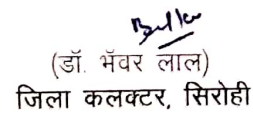 (डॉ. भॅवर लाल)
जिला कलक्टर, सिरोही